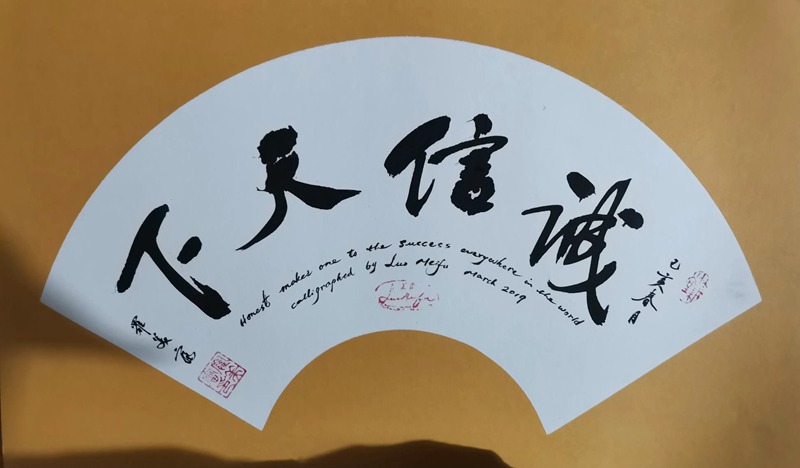 诚信天下
己亥春月
Honest makes one to the success everywhere in the world
calligraphed by Luo Meifu March 2019
羅美富